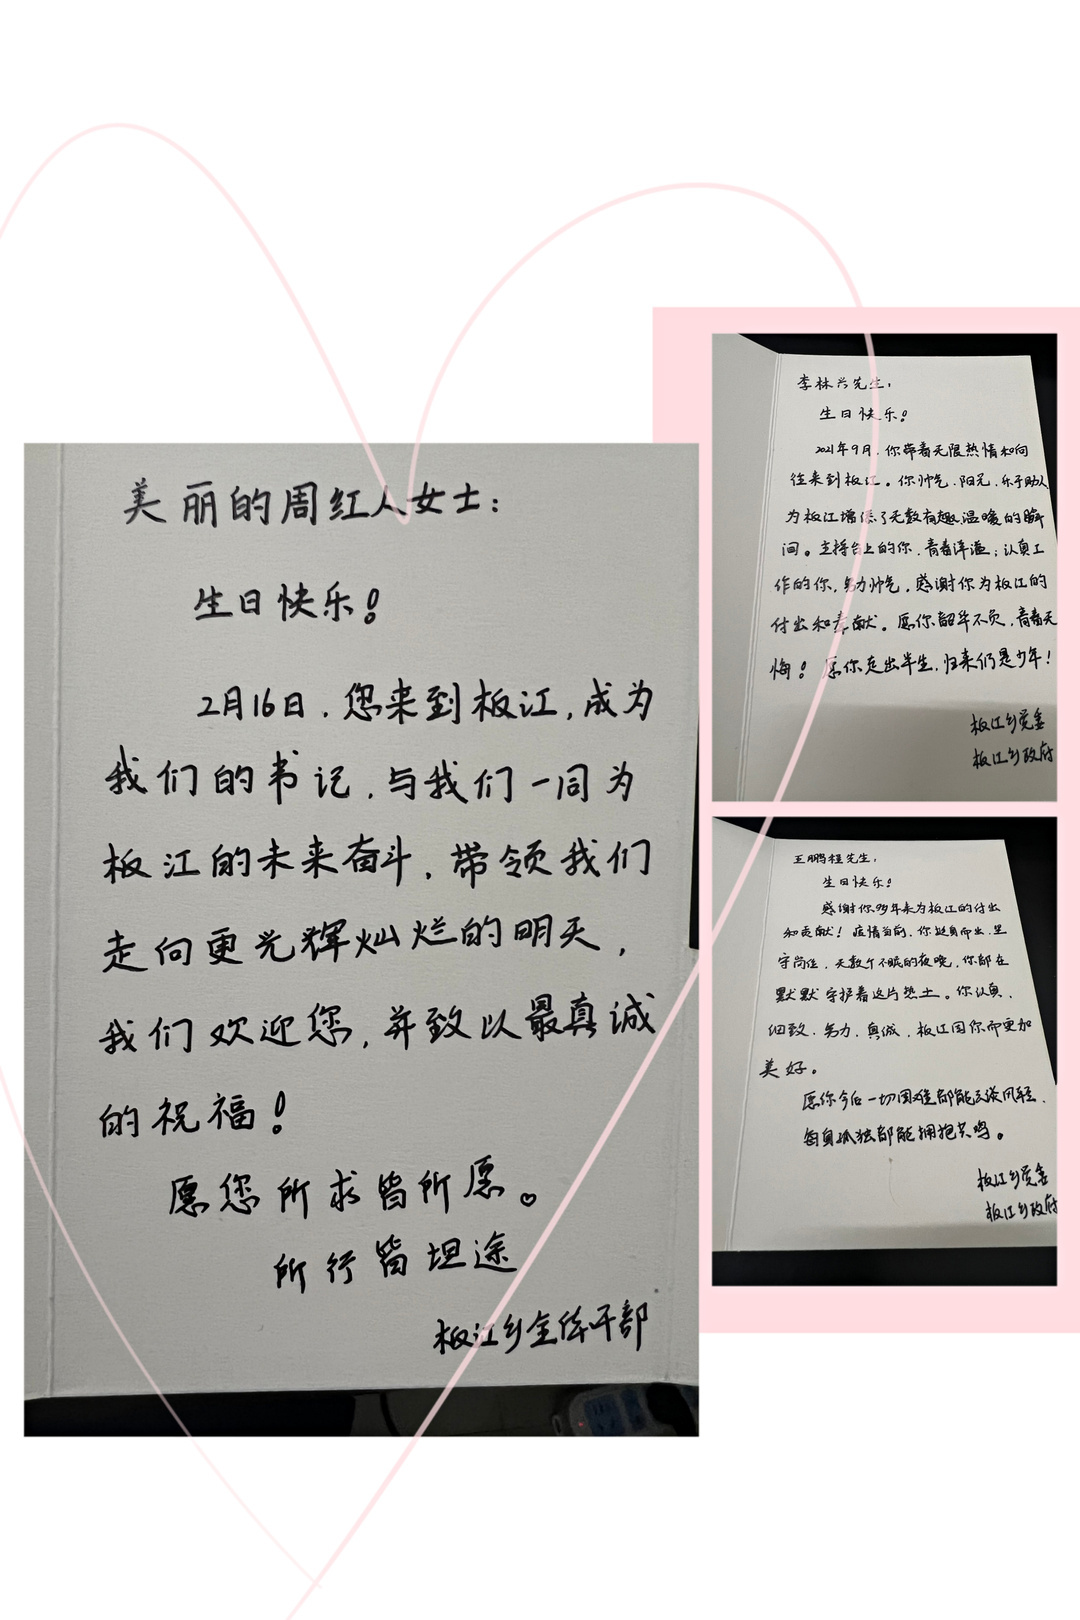 美丽的周红人女士：
生日快乐！
2月16日，您来到板江，成为
我们的书记，与我们一同为
板江的未来奋斗，带领我们
走向更光辉灿烂的明天，
我们欢迎您，并致以最真诚
的祝福！
愿您所求皆所愿。
所行皆坦途
板江乡全体干部
李林兴先生：
生日快乐！
2021年9月，你带着无限热情和向
往来到板江。你帅气、阳光、乐于助人
为板江增添了无数有趣、温暖的瞬
间。主持台上的你，青春洋溢；认真工
作的你，努力帅气，感谢你为板江的
付出和奉献。愿你韶华不负，青春无
悔！愿你走出半生，归来仍是少年！
板江乡党委
板江乡政府
王鹏程先生：
生日快乐！
感谢你多年来为板江的付出
和贡献！疫情当前，你挺身而出，坚
守岗位，无数个不眠的夜晚，你都在
默默守护着这片热土。你认真、
细致、努力、真诚，板江因你而更加
美好。
愿你今后一切困难都能云淡风轻，
每身孤独都能拥抱共鸣。
板江乡党委
板江乡政府